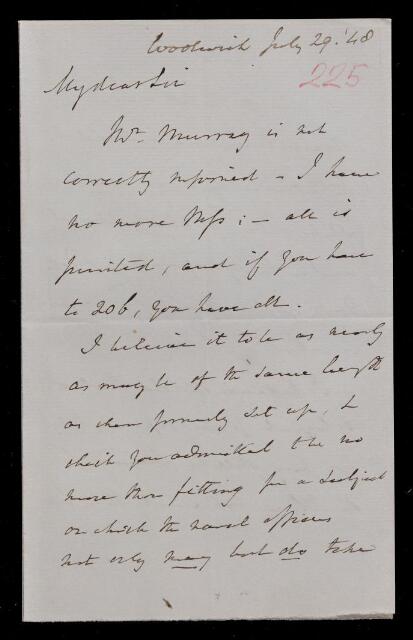 Woolwich July 29. '48
225
My dear Sir
Mr. Murray is not
correctly informed - I have
no more Mss; - all is
printed, and if you have
to 206, you have all.
I believe it to be as nearly
as may be of the same length
as when formerly set up, &
which you admitted to be no
more than fitting for a subject
on which the naval officers
not only may but do take